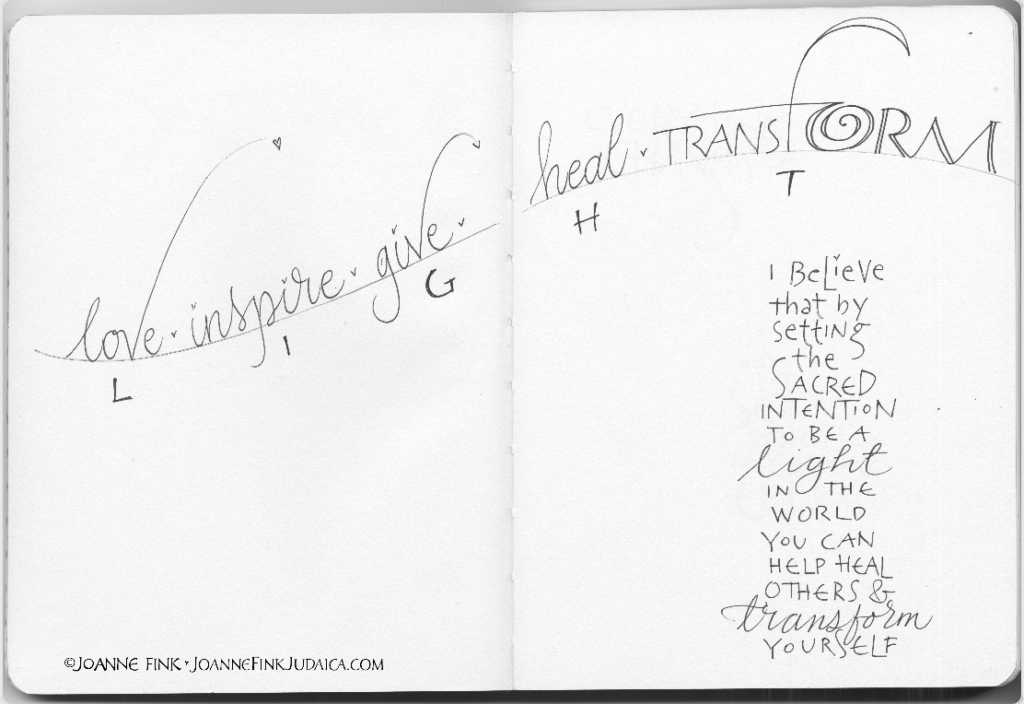 love · inspire · give · heal · TRANSFORM
L I G H T
I BELiEVE
that by
settiNg
the
SACRED
INTENTiON
TO BE A
light
IN THE
WORLD
YOU CAN
HELP HEAL
OTHERS &
transform
YOURSELF
©JOANNE FINK ♥ JOANNEFINKJUDAICA.COM